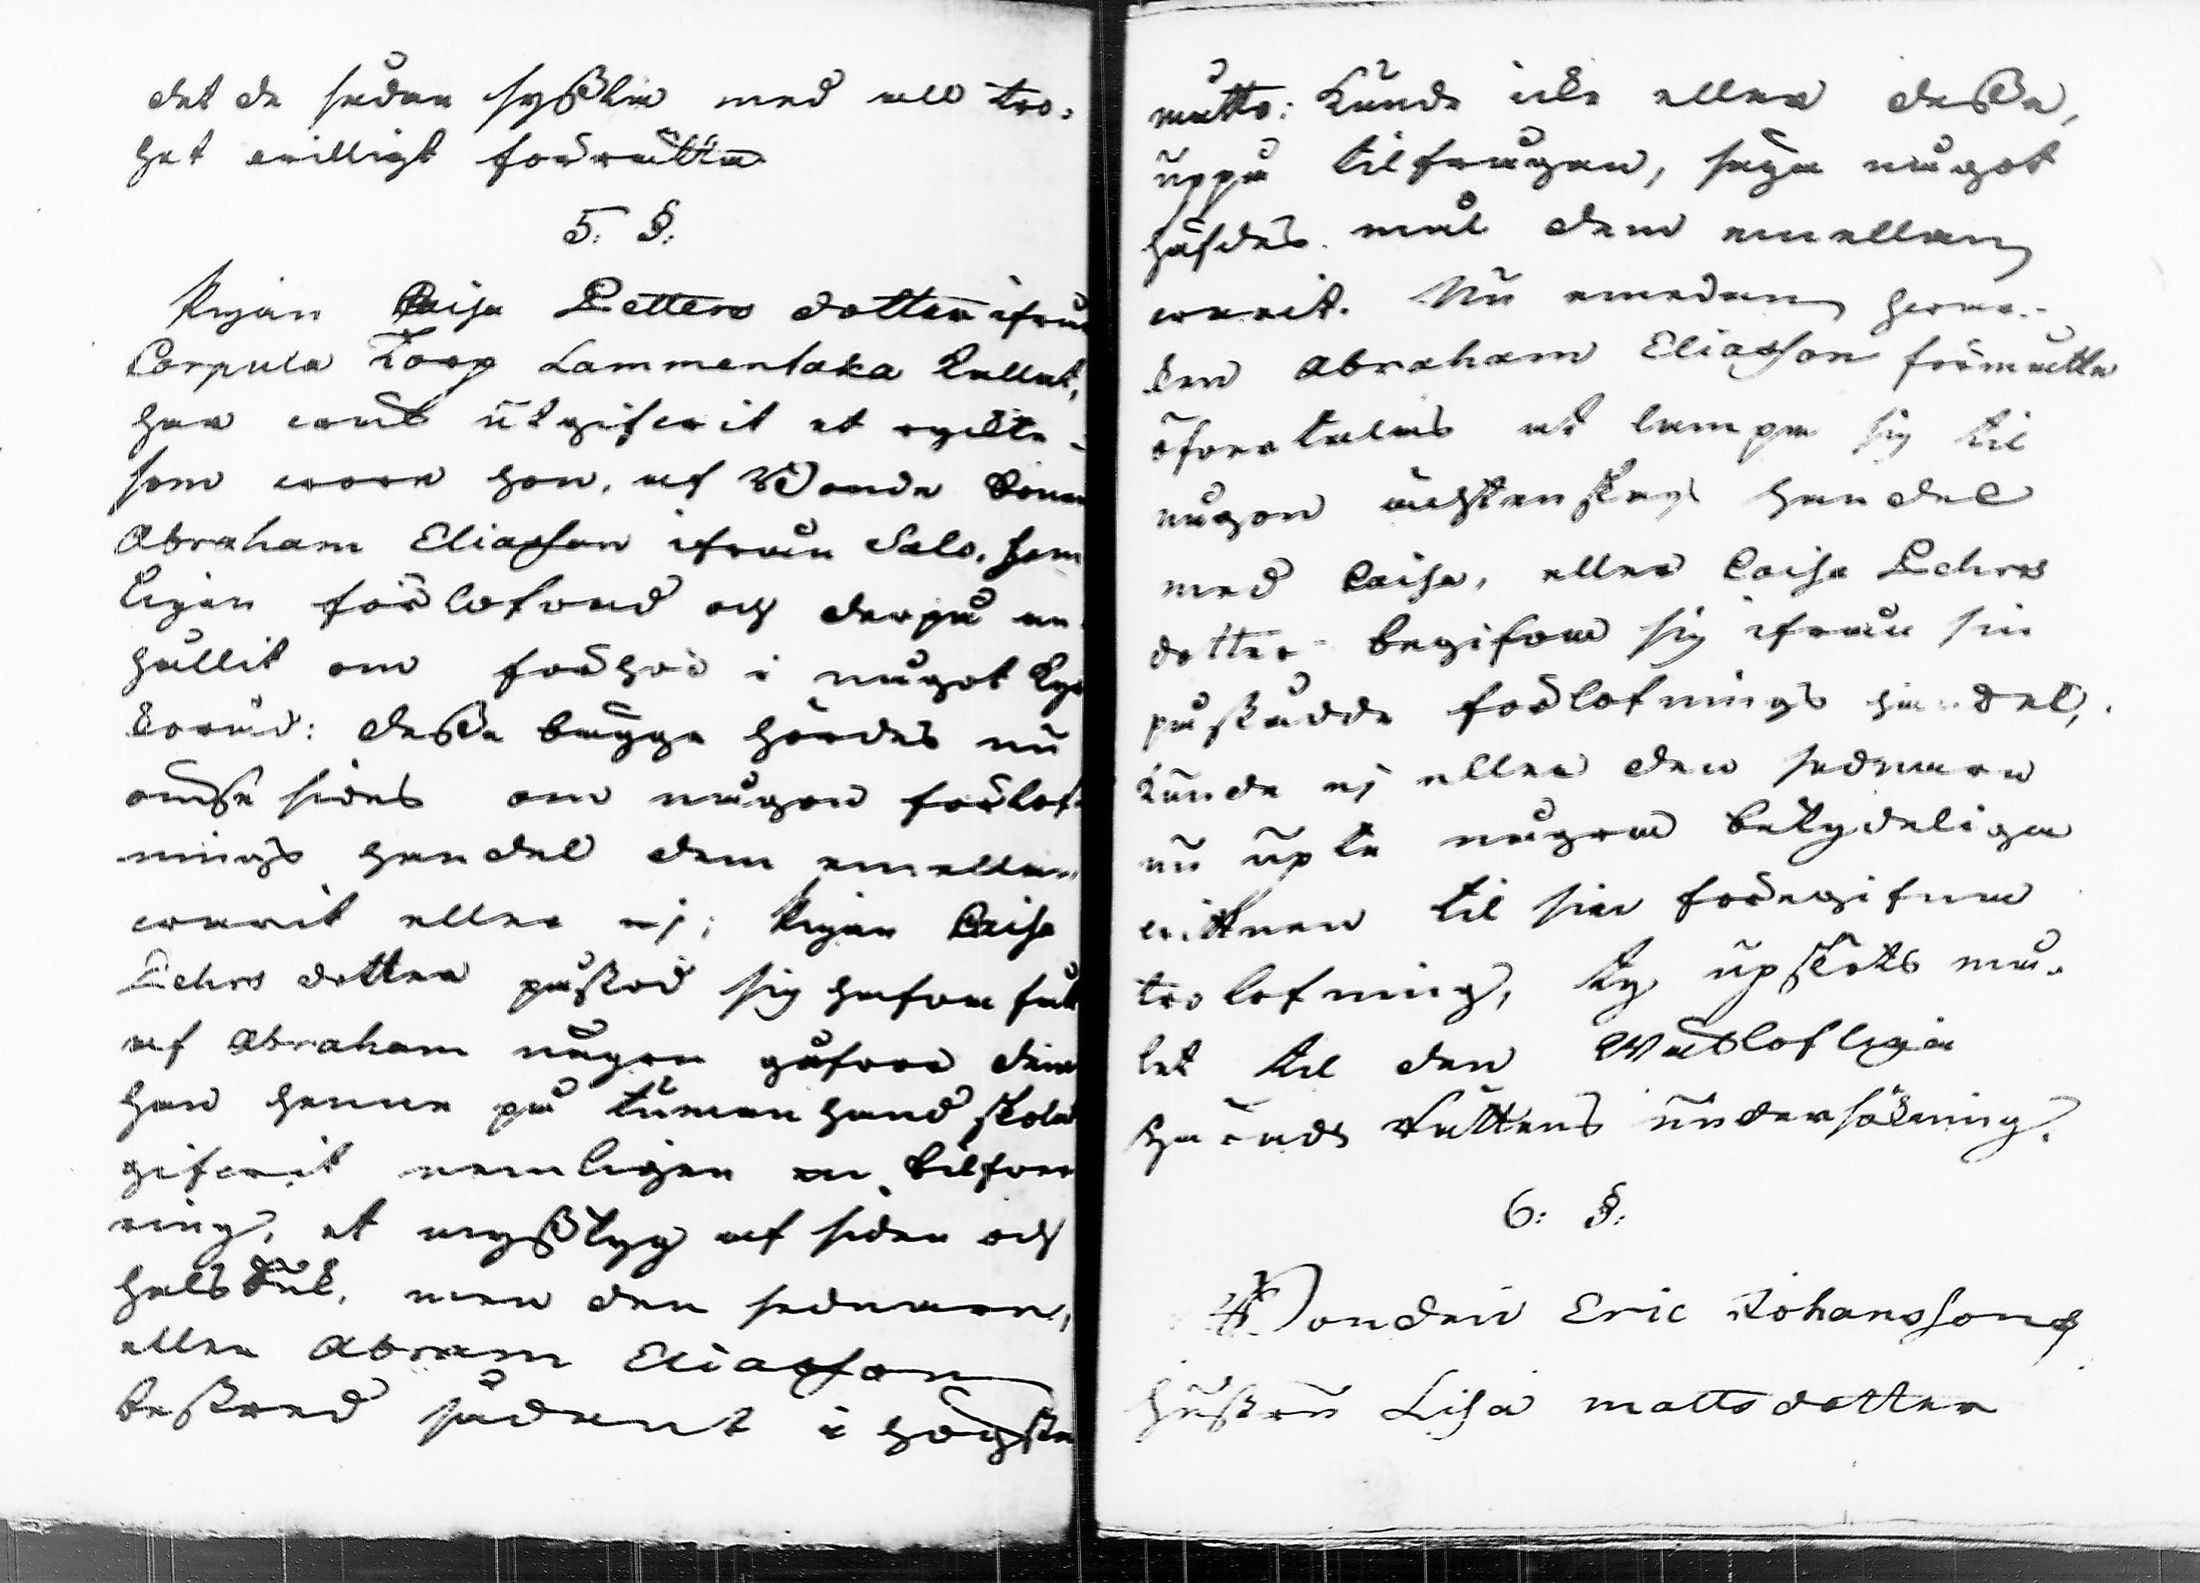 det de sedan sysslor med all tro-
het willigt förrätta
5. §.
Pigan Caisa Petters dotter ifrån
Torp Lammentaka
har nu utgifwit et rychte
som wore hon, af Bonde Sonen
Abraham Eliasson ifrån Salo, hem-
ligen förlofwad och derpå an-
hållit om förhör i något Kyr-
koråd: dessa bägge hördes nu
ömse sides om någon förlof-
nings handel dem emellan
warit eller ej; Pigan Caisa
Pehrs dotter påstod sig hafwa fåt
af Abraham någon gåfwor dem
han henne på tuman hand skolat
gifwit nemligen en
ring, et mysstyg af siden och
halsduk, men den sednare,
eller Abram Eliasson
bestred sådant i högsta
matto: Kunde icke eller dessa,
uppå tilfrågan, säga något
häfdes mål dem emellan
warit. Nu emedan herra-
den Abraham Eliasson förmåtte
öfwertalas at lämpa sig til
någon ächtenskaps handel
med Caisa, eller Caisa Pehrs
dotter begifwa sig ifrån sin
påstådde förlofnings handel,
kunde ej eller den sednare
nu upte några betydeliga
wittnen til sin föregifna
trolofning, ty upsköts må-
let til den Wällofliga
Härads Rättens undersökning.
6. §.
Bonden Eric Johanssons
hustru Lisa matts dotter